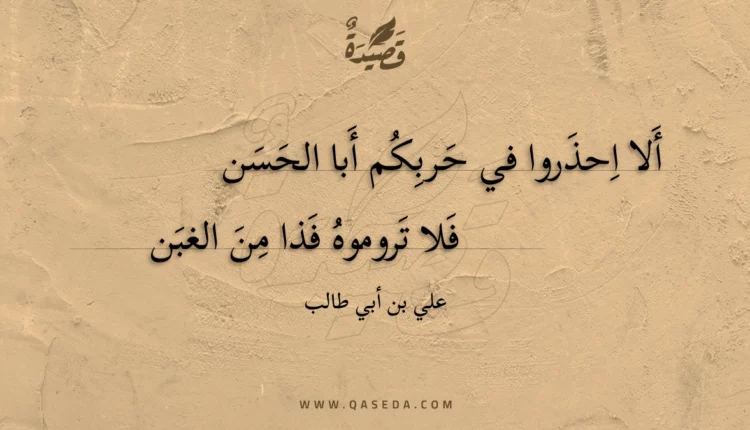 قَصِيدَةٌ
أَلا اِحذَروا في حَربِكُم أَبا الحَسَن
فَلا تَروموهُ فَذا مِنَ الغبَن
علي بن أبي طالب
WWW.QASEDA.COM